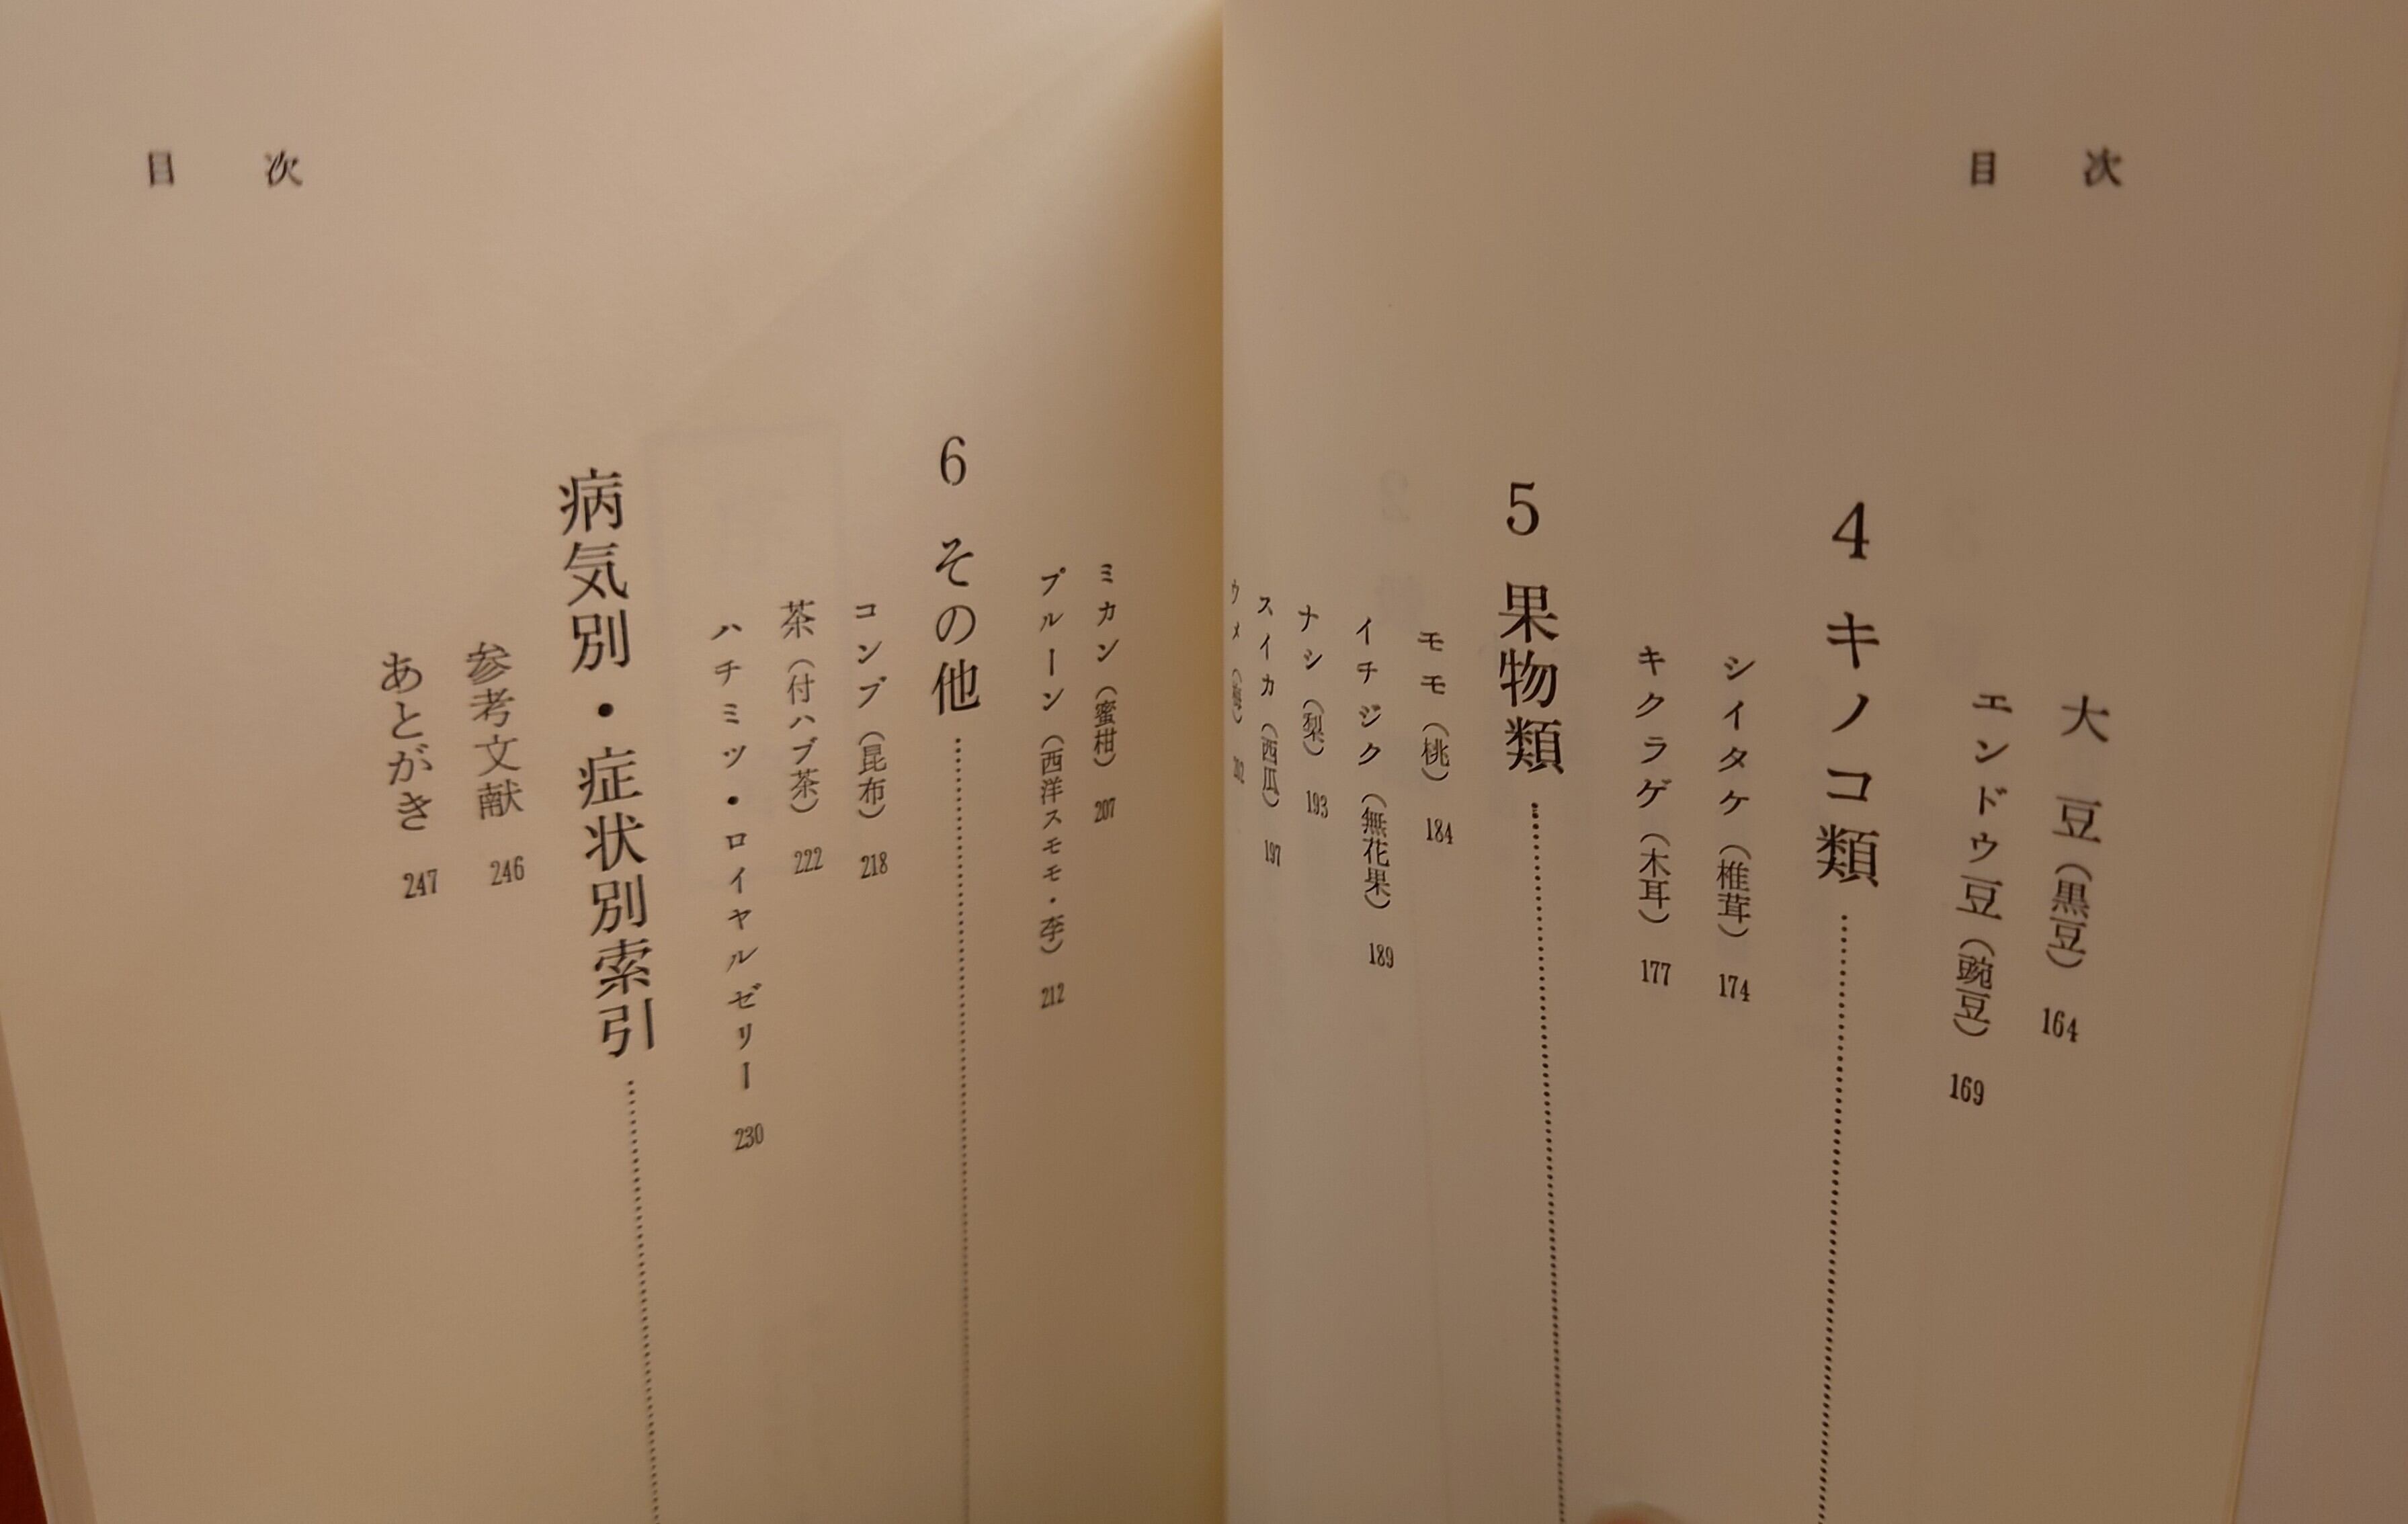 目次
大豆（黒豆） 164
エンドウ豆（豌豆） 169
4 キノコ類
シイタケ（椎茸） 174
キクラゲ（木耳） 177
5 果物類
モモ（桃） 184
イチジク（無花果） 189
ナシ（梨） 193
スイカ（西瓜） 197
ウメ（梅）
目次
ミカン（蜜柑） 207
プルーン（西洋スモモ・李） 212
6 その他
コンブ（昆布） 218
茶（付ハブ茶） 222
ハチミツ・ロイヤルゼリー 230
病気別・症状別索引
参考文献 246
あとがき 247